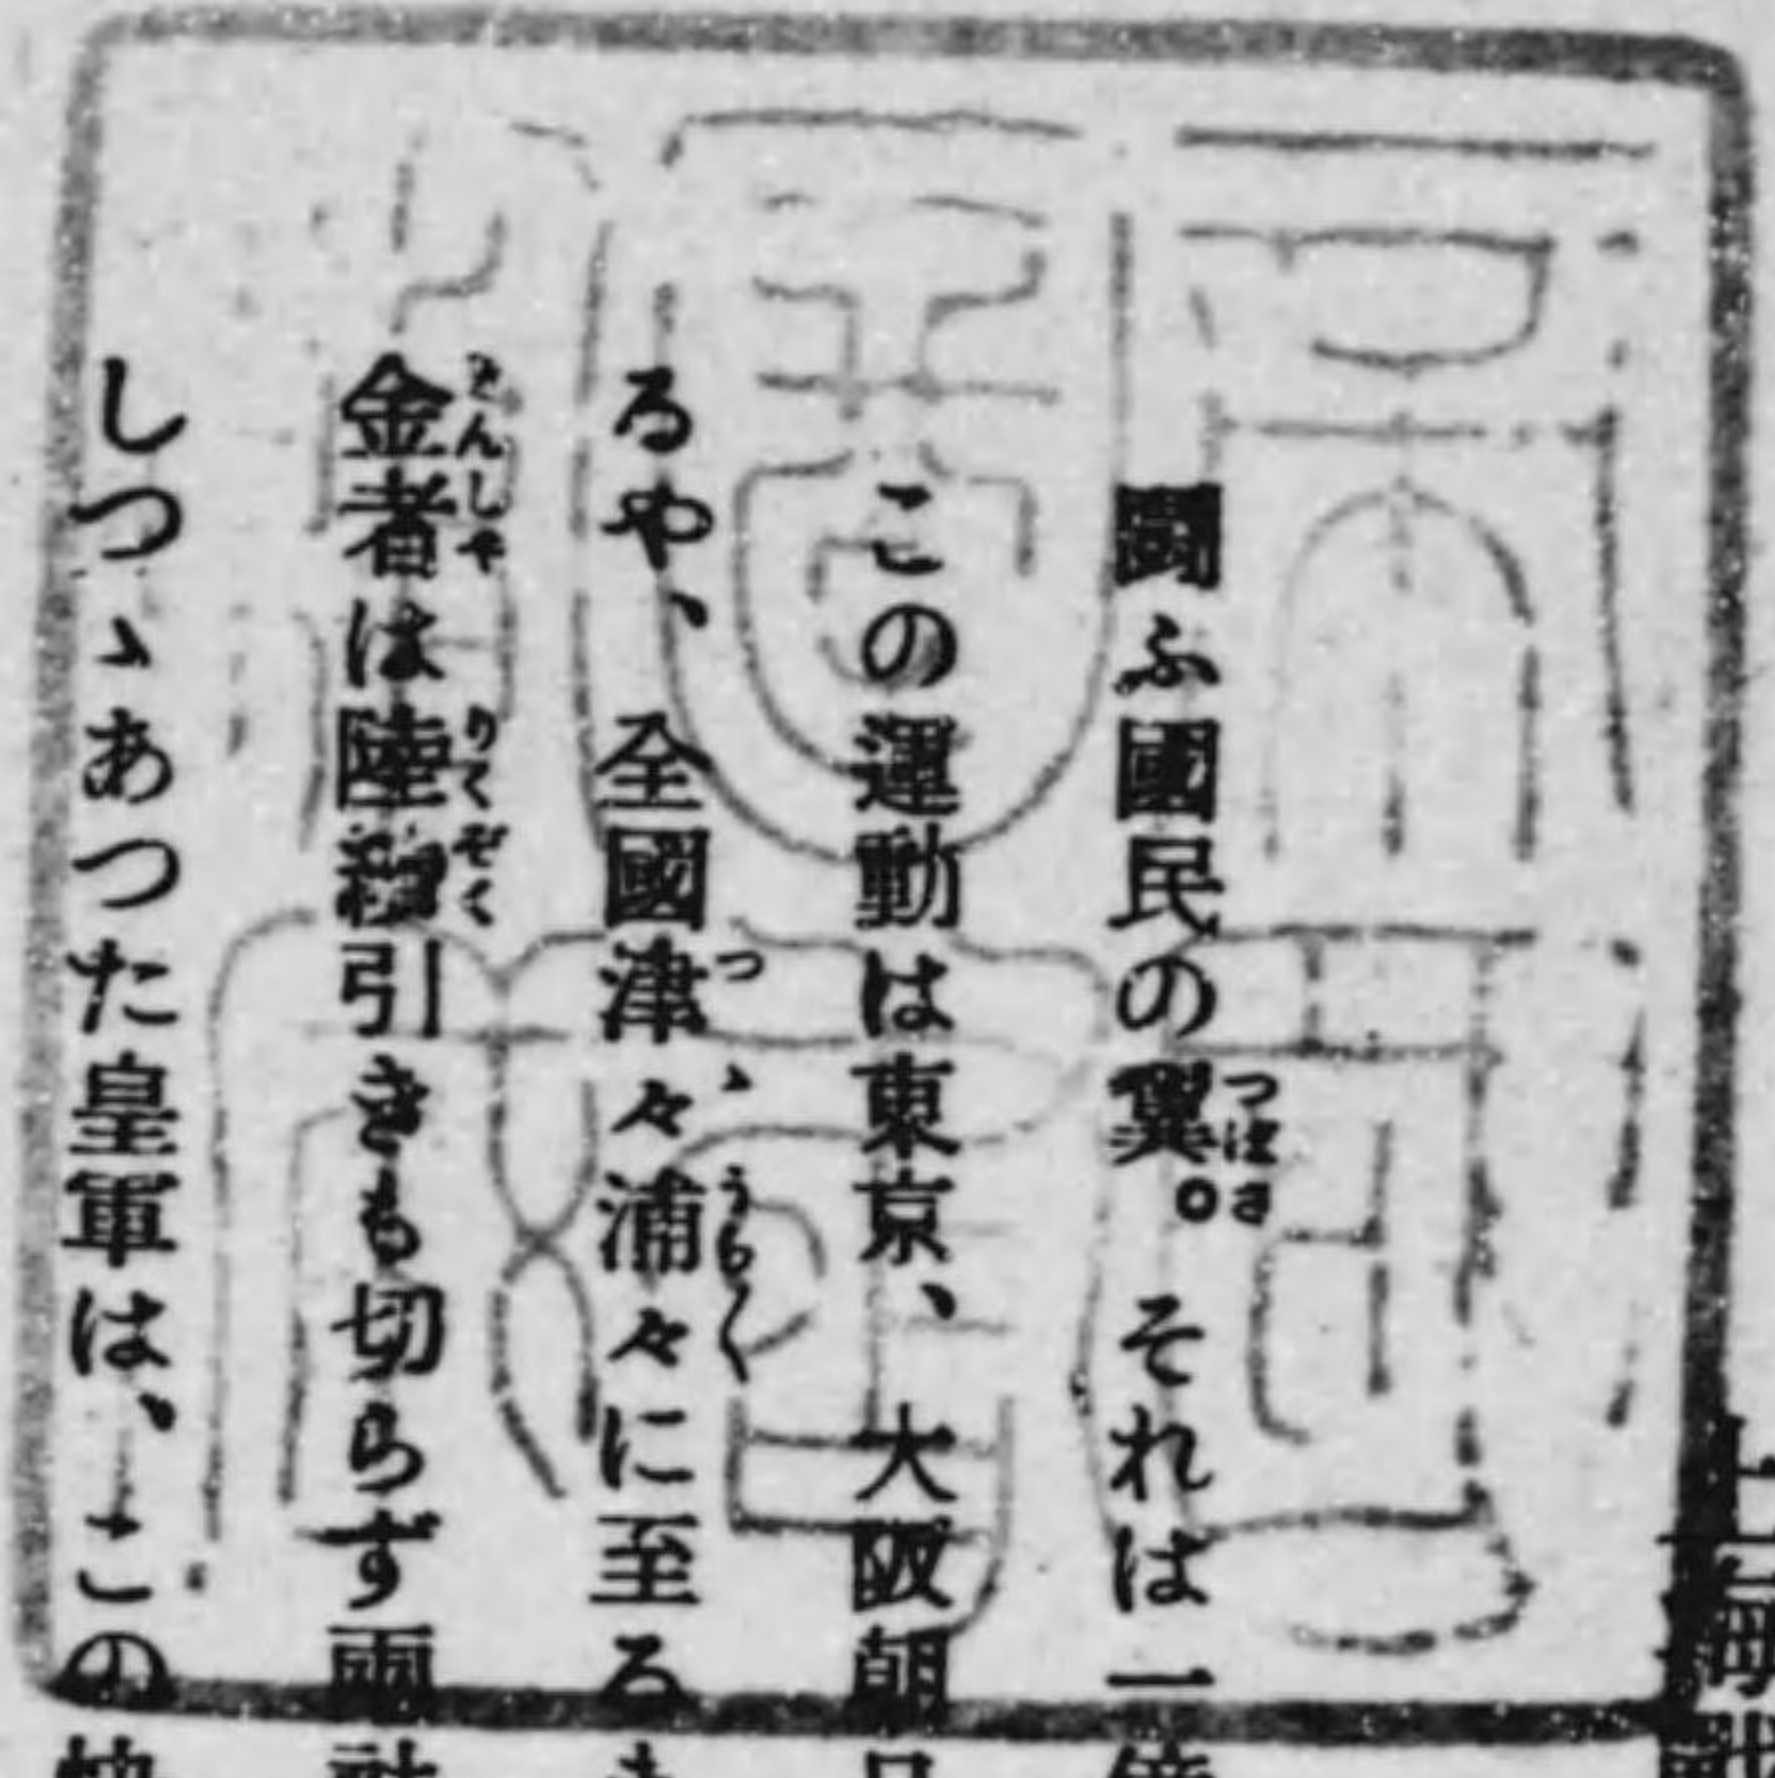 上海戰
闘ふ國民の翼。それは一
この運動は東京、大阪朝日
るや、全國津々浦々に至るま
金者は陸續引きも切らず兩社
しつゝあつた皇軍は、この